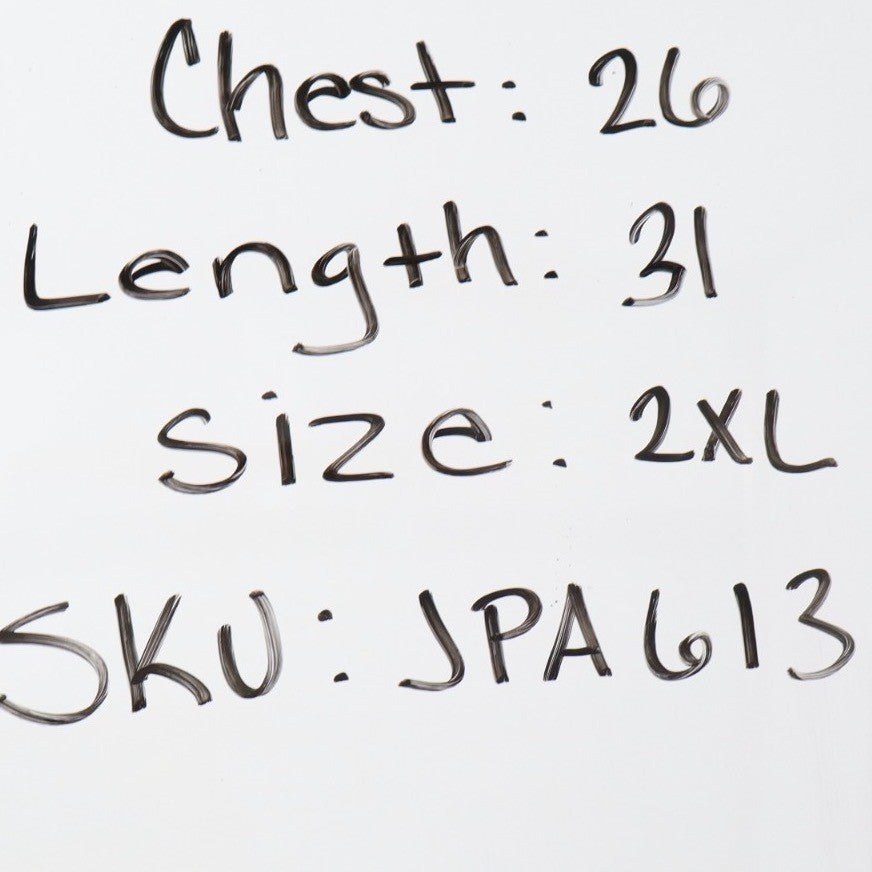 Chest: 26
Length: 31
Size: 2XL
SKU: JPA613